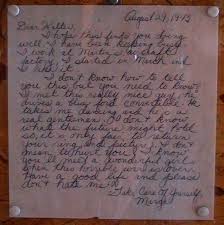 August 29, 1943
Dear Willie,
I hope this finds you doing
well. I have been keeping busy
I work at
factory. I started in March and
I like it.
I don't know how to tell
you this but you need to know.
I met this really nice guy. He
drives a tiny ford convertible. He
takes me dancing and he is a
real gentleman. I don't know
what the future might hold
so, it is only fair to return
your ring and picture. I don't
mean to hurt you. I know
you'll meet a wonderful girl
when this horrible war is over.
Have a good life and please
don't hate me.
Take Care Of Yourself,
Margie